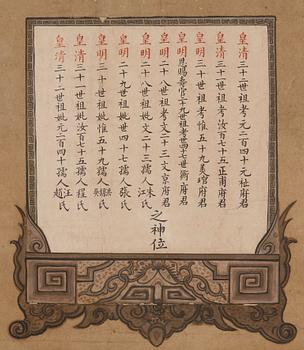 皇清三十二世祖考元二百四十元杜府君
皇清三十一世祖考汝百七十五正甫府君
皇明三十世祖考惟五十九美瑄府君
皇明恩賜壽官二十九世祖考世四十七術府君
皇明二十八世祖考文二十三文京府君
皇明二十八世祖妣文二十三孺人朱江氏
皇明二十九世祖妣世四十七孺人張氏
皇明三十世祖妣惟五十九孺人吳氏
皇清三十一世祖妣汝百七十五孺人程氏
皇清三十二世祖妣元二百四十孺人趙汪氏
之神位